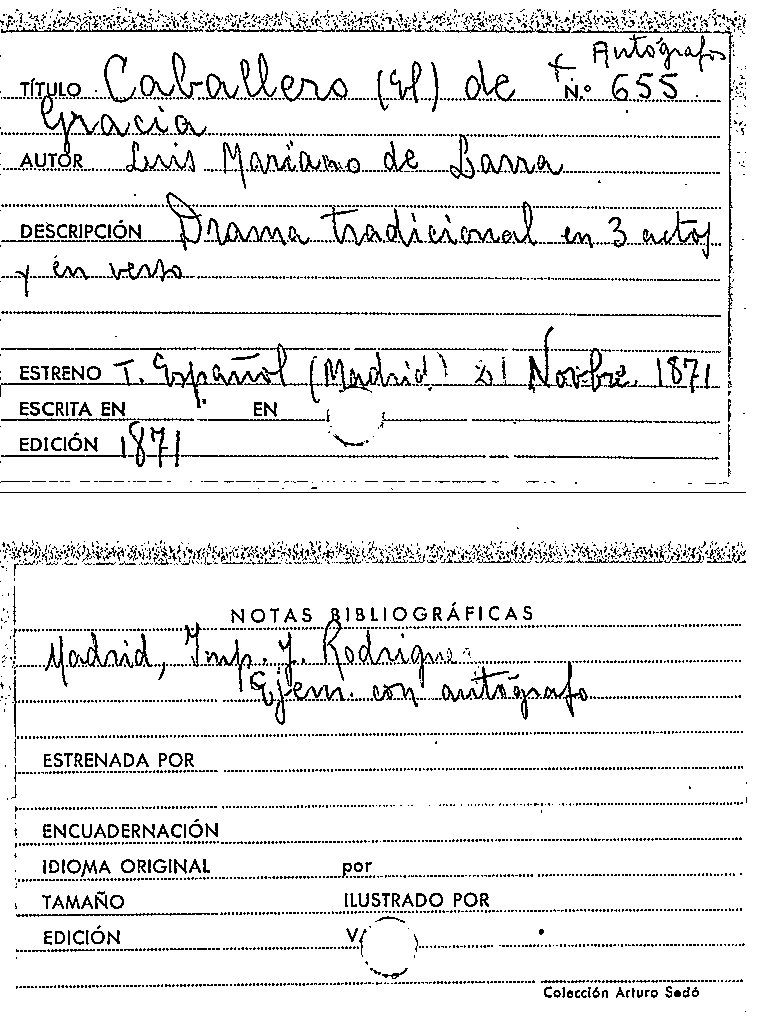 + Autógrafos
TÍTULO Caballero (El) de N.º 655
Gracia
AUTOR Luis Mariano de Larra
DESCRIPCIÓN Drama tradicional en 3 actos
y en verso
ESTRENO T. Español (Madrid) 21 Novbre. 1871
ESCRITA EN EN
EDICIÓN 1871
NOTAS BIBLIOGRÁFICAS
Madrid, Imp. J. Rodriguez
Ejem. con autógrafo
ESTRENADA POR
ENCUADERNACIÓN
IDIOMA ORIGINAL por
TAMAÑO ILUSTRADO POR
EDICIÓN
Colección Arturo Sedó